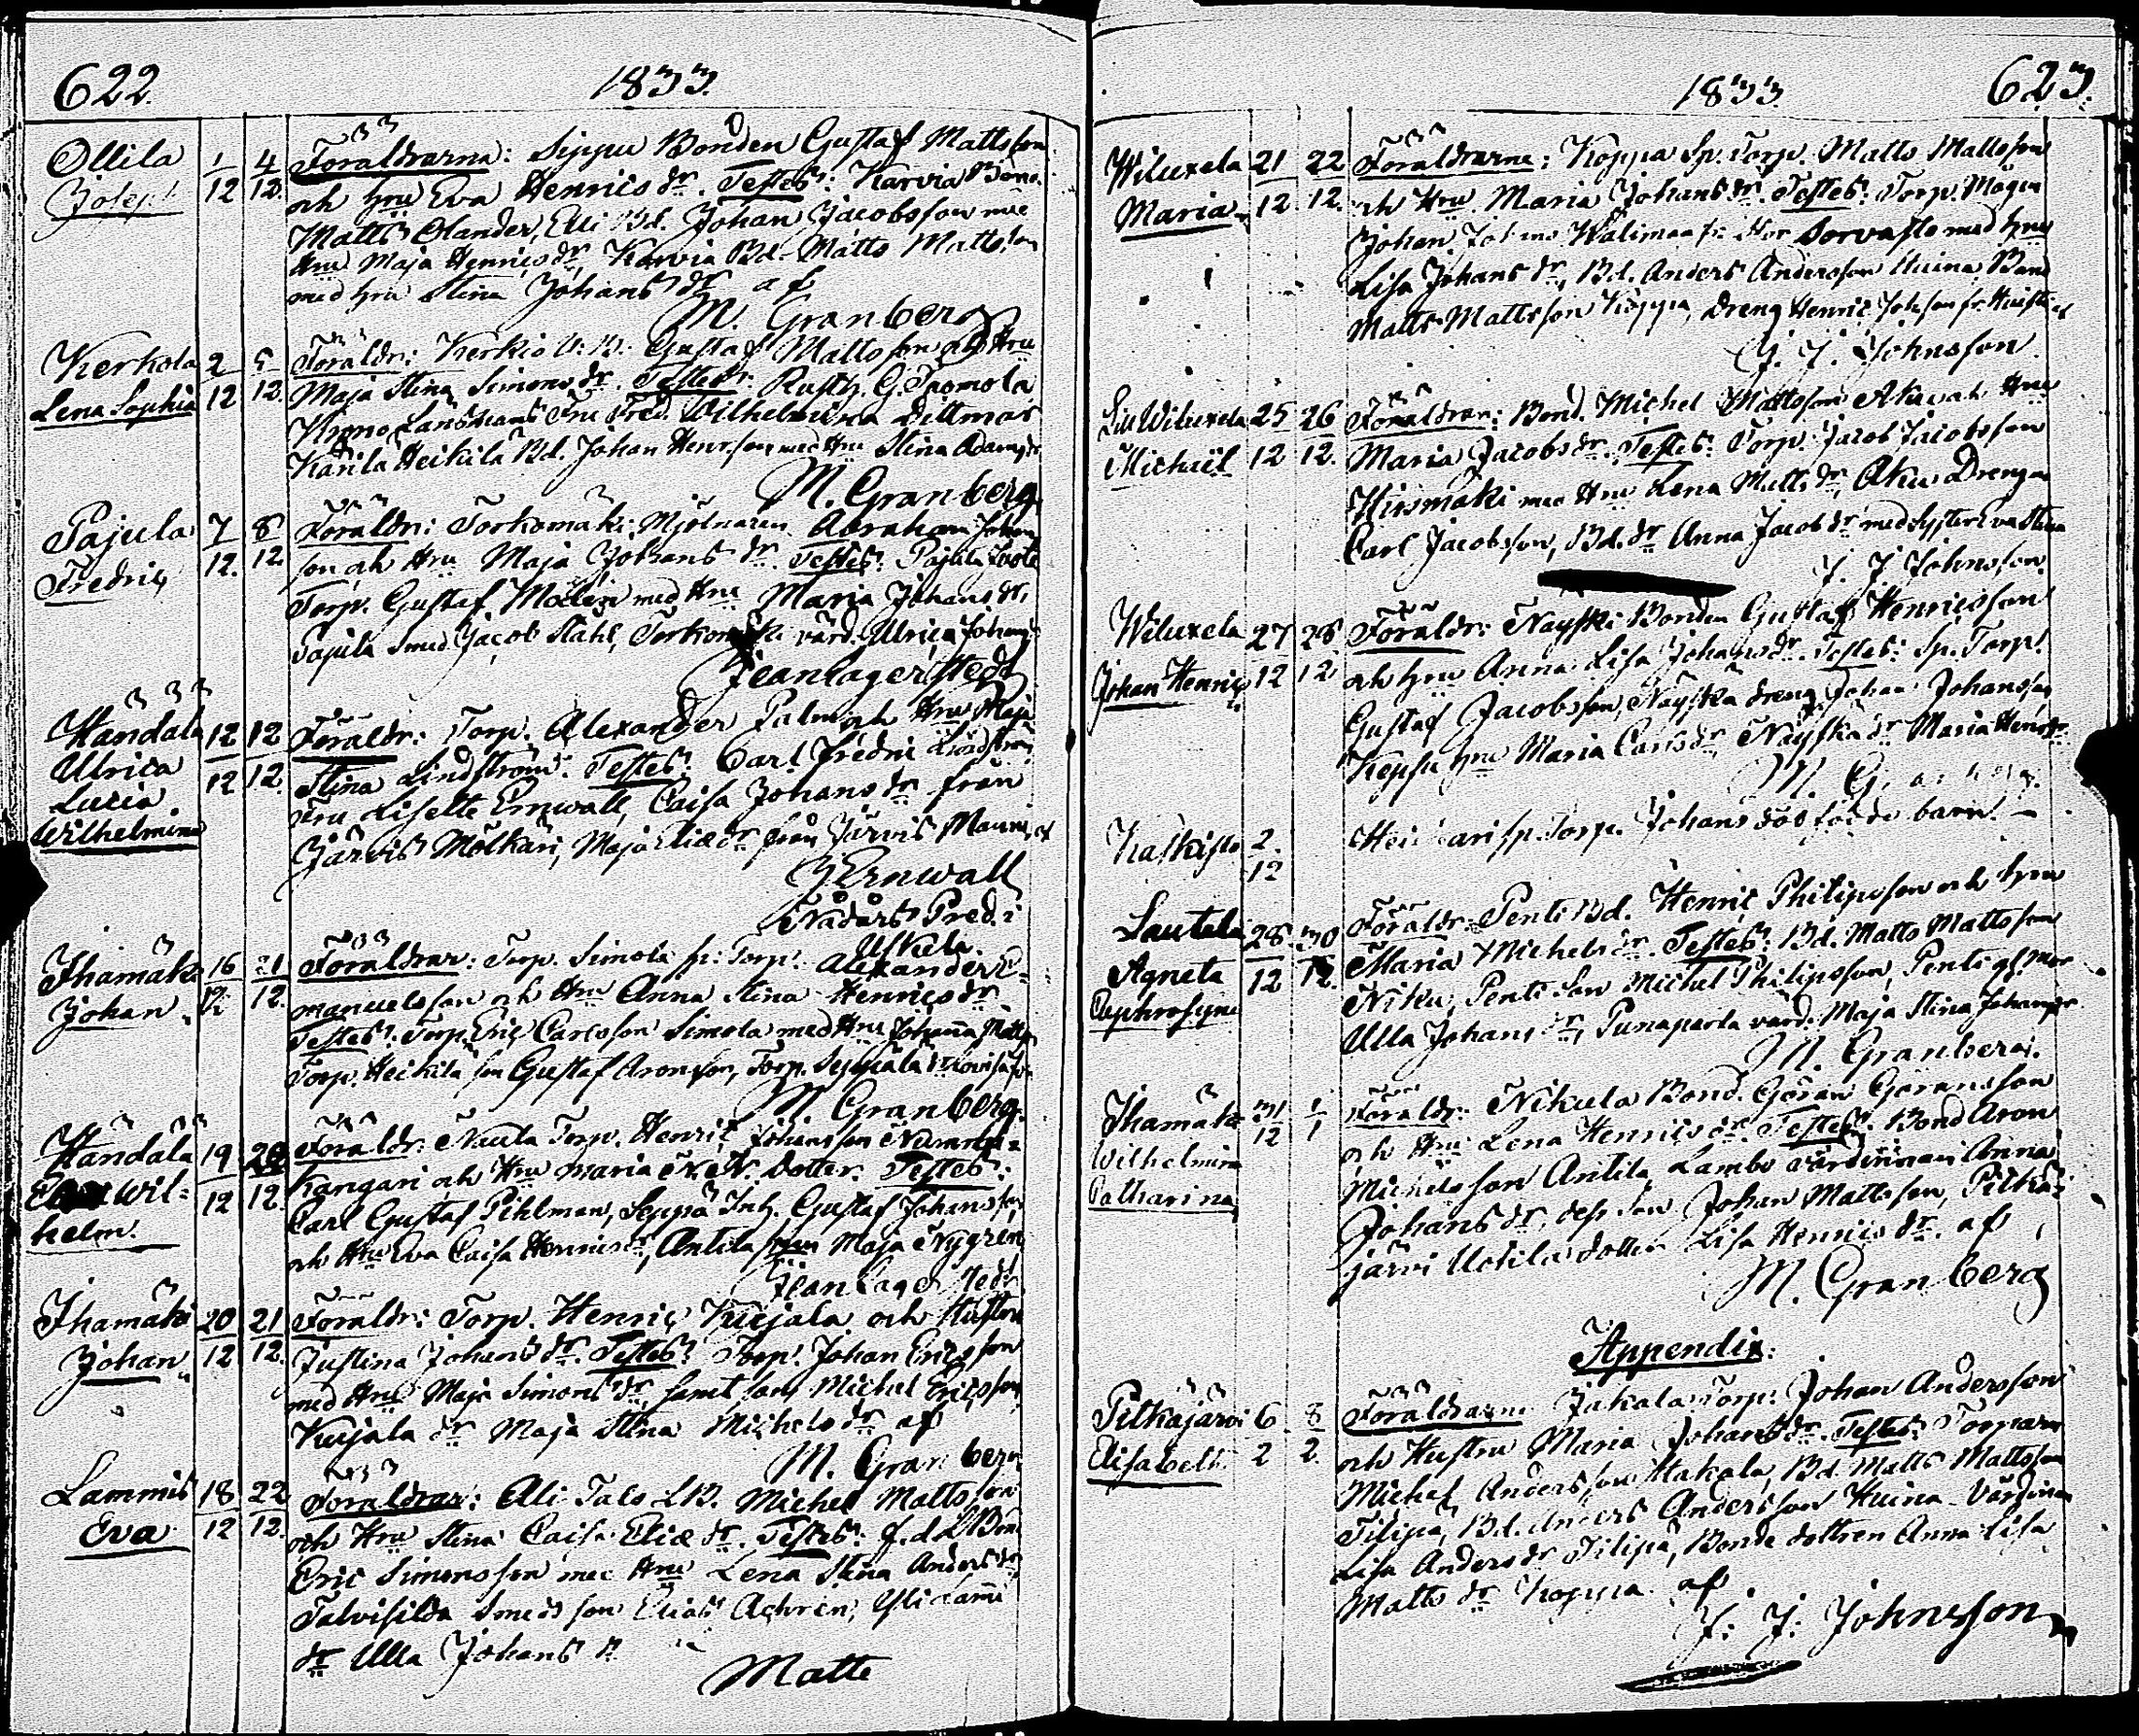 622.
1833.
Ollila 1/12 4/12 Föräldrarna: Sippu Bonden Gustaf Mattsson
Joseph och Hru Eva Henrics dr. Testes: Karvia Bond.
Matts Olander, Elli Bd. Johan Jacobsson med
Hru Maja Henrics dr Karvia Bd. Matts Mattsson
med hru Stina Johans dr af
M. Granberg
Kerkola 2/12 5/12 Föräldr: Kerkio Gustaf Mattsson och Hru
Lena Sophia Maja Stina Simons dr. Testes: Rusth. G. Tromola
Krono Länsmans Fru Fred. Wilhelmina Dittmar
Karila Heikila Bd. Johan Henrsson med Hru Stina Adams dr
M. Granberg
Pajula 7/12 8/12 Föräldr: Torkomäki Mjölnaren Abraham Johans
Fredric son och Hru Maja Johans dr. Testes: Pajula
Torp. Gustaf med Hru Maria Johans dr,
Pajula smed Jacob Stahl, Torkomäki värd. Ulrica Johans
Jean Lagerstedt
Handala 12/12 12/12 Föräldr: Torp. Alexander Palm och Hru Maja
Ulrica Stina Lindström. Testes: Carl Fredric Lindström
Lucia Fru Liselte Ernwall, Caisa Johans dr från
Wilhelmina Järvis Mölkäri, Maja Eliæ dr från Järvis Mauri, af
J Ernwall
Nådårs Pred. i
Uskela.
Ihamäki 16/12 21/12 Föräldrar: Torp. Simola Torp. Alexander E-
Johan manuelsson och Hru Anna Stina Henrics dr
Testes: Torp. Eric Carlsson Simola med Hru Johanna Matts
Torp. Heikilä son Gustaf Aronsson, Torp. Seppälä dr Lovisa
M. Granberg.
Handala 19/12 20/12 Föräldr: Torp. Henric Johansson Nummen-
Wil- kangari och Hru Maria N. N. dotter. Testes:
helm. Carl Gustaf Pihlman, Seppä Inh. Gustaf Johansson
och Hru Eva Caisa Henrics dr, Antila Maja Nygren
Jean Lagerstedt
Ihamäki 20/12 21/12 Föräldr: Torp. Henric Kujala och Hustru
Johan Justina Johans dr. Testes: Torp. Johan Ericsson
med Hru Maja Simons dr samt son Michel Ericsson
Kujala dr Maja Stina Michels dr af
M. Granberg
Lammis 18/12 22/12 Föräldrar: Ali Talo LB. Michel Mattsson
Eva och Hru Stina Caisa Eliæ dr. Testes: f.d. LBond
Eric Simonsson med Hru Lena Stina Anders dr
Talvisilda Smeds son Elias Achrén,
dr Ulla Johans dr
Matts
1833.
623.
Wiluxela 21/12 22/12 Föräldrarne: Koppa Sp. Torp. Matts Mattsson
Maria och Hru Maria Johans dr. Testes: Torp. Mågen
Johan Johans Walimaa fr. Hor Sorvasto med hru
Lisa Johans dr, Bd. Anders Andersson Huina Bond
Matts Mattsson Koppa, Dreng Henric
J. J. Johnsson.
Wiluxela 25/12 26/12 Föräldrar: Bond. Michel Mattsson Aku och Hru
Michaël Maria Jacobs dr. Testes: Torp. Jacob Jacobsson
Hirsmäki med Hru Lena Matts dr, Aku Drengen
Carl Jacobsson, Bd. dr Anna Jacobs dr med syster Eva Stina
J. J. Johnsson.
Wiluxela 27/12 28/12 Föräldr: Näyski Bonden Gustaf Henricsson
Johan Henric och hru Anna Lisa Johans dr. Testes: Sp. Torp.
Gustaf Jacobsson, Näyskä dreng Johan Johansson
Keppu hru Maria Carls dr Näyskä dr Maria Henrs dr
M. G
Kaskisto 2/12 sp. Torp. Johans död födde barn. —
Lautela 28/12 30/12 Föräldr: Penti Bd. Henric Philipsson och hru
Agneta Maria Michels dr. Testes: Bd. Matts Mattsson
Euphrosyne Niku, Penti son Michel Philipsson, Penti
Ulla Johans dr, Punaparta värd. Maja Stina Johans dr
M. Granberg.
Ihamäki 31/12 1/1 Föräldr: Nikula Bond. Göran Göransson
Wilhelmina och Hru Lena Henrics dr. Testes: Bond Aron
Catharina Michelsson Antila, Lambo värdinnan Anna
Johans dr, dess son Johan Mattsson, Pitkä-
järvi Uotila dotter Lisa Henrics dr. af
M. Granberg
Appendix:
Pitkäjärvi 6/2 8/2 Föräldrarne Jakala Torp. Johan Andersson
Elisabeth och Hustru Maria Johans dr. Testes: Torparn
Michel Andersson Hakala, Bd. Matts Mattsson
Filipa, Bd. Anders Andersson Huina, Värdinnan
Lisa Anders dr Filipa, Bonde dottren Anna Lisa
Matts dr Koppa af
J. J. Johnsson